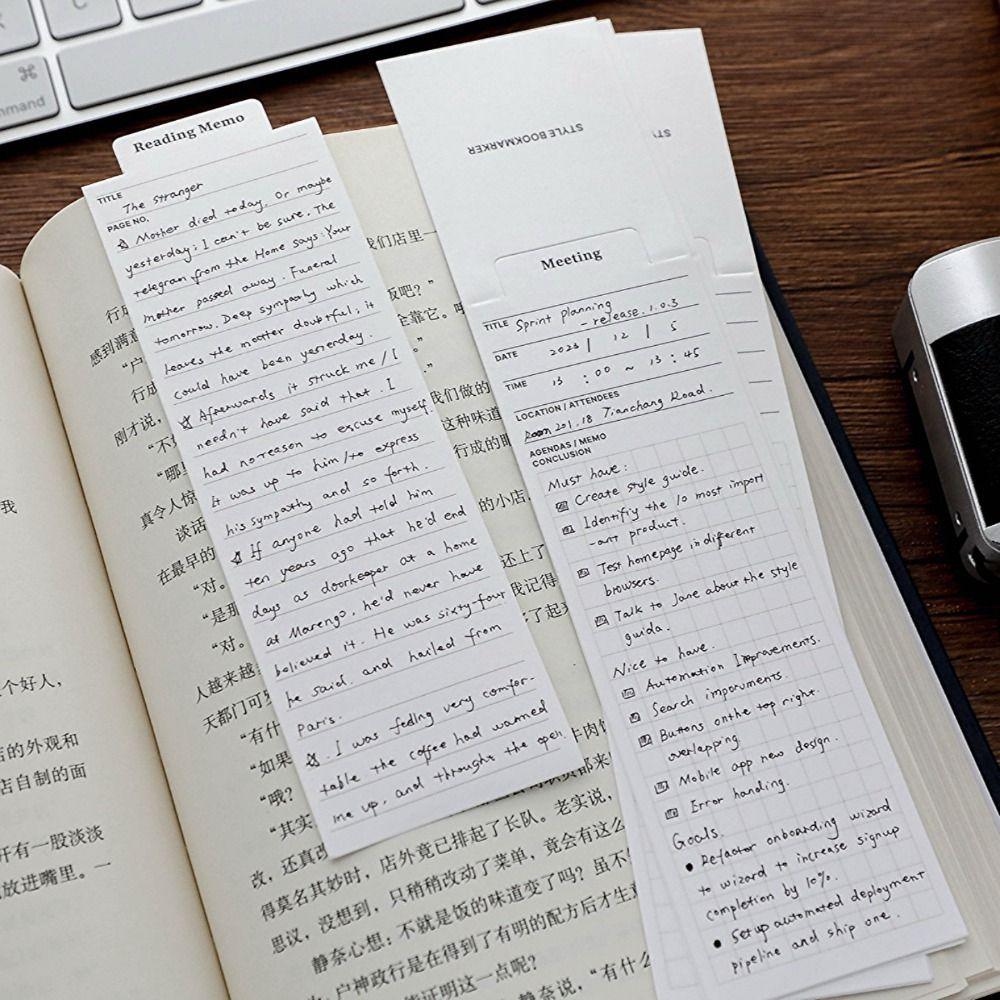 C
⌘
mmand
Reading Memo
TITLE
The stranger
PAGE NO.
Mother died today. Or maybe
yesterday; I can't be sure. The
telegram from the Home says: Your
mother passed away. Funeral
tomorrow. Deep sympathy which
leaves the matter doubtful; it
could have been yesterday.
Afterwards it struck me / I
needn't have said that. I
had no reason to excuse myself.
It was up to him / to express
his sympathy and so forth.
If anyone had told him
ten years ago that he'd end
days as doorkeeper at a home
at Marengo, he'd never have
believed it. He was sixty-four
he said. and hailed from
Paris.
. I was feeling very comfor-
table the coffee had warmed
me up, and throught the open
STYLE BOOKMARKER
STY
Meeting
TITLE Sprint planning
- release. 1.0.3
DATE 2023 / 12 / 5
TIME 13 : 00 ~ 13 : 45
LOCATION / ATTENDEES
Room 201. 18 Tianchang Road.
AGENDAS / MEMO
CONCLUSION
Must have:
Create style guide.
Identifiy the 10 most import
-ant product.
Test homepage in different
browsers.
Talk to Jane about the style
guida.
Nice to have.
Automation Improvements.
Search imporuments.
Buttons on the top right.
overlapping.
Mobile app new design.
Error handing.
Goals.
• Refactor onboarding wizard
to wizard to increase signup
completion by 10%.
• Setup automated deployment
pipeline and ship one.
我
个好人，
店的外观和
店自制的面
开有一股淡淡
放进嘴里。一
我们店里一
行成
饭吧？”
感到满意
全靠它。
“户
行成
刚才说，
我们做的
“不
这种味道
“哪
行成的
真令人惊
谈话
的小店
在最早的
“对。
还上了
“是那
我记得
“对。
了起
人越来越
天都门可
“有什
“如果
牛肉饭
“哦？
职员都来
“其实
老实说，
还真
店外竟已排起了长队。
改，
只稍稍改动了菜单，竟会有这么
得莫名其妙时，
思议，没想到，
不就是饭的味道变了吗？虽不
静奈心想：
是在得到了有明的配方后才生意
户神政行
能证明这一点呢？
静奈说，“有什么